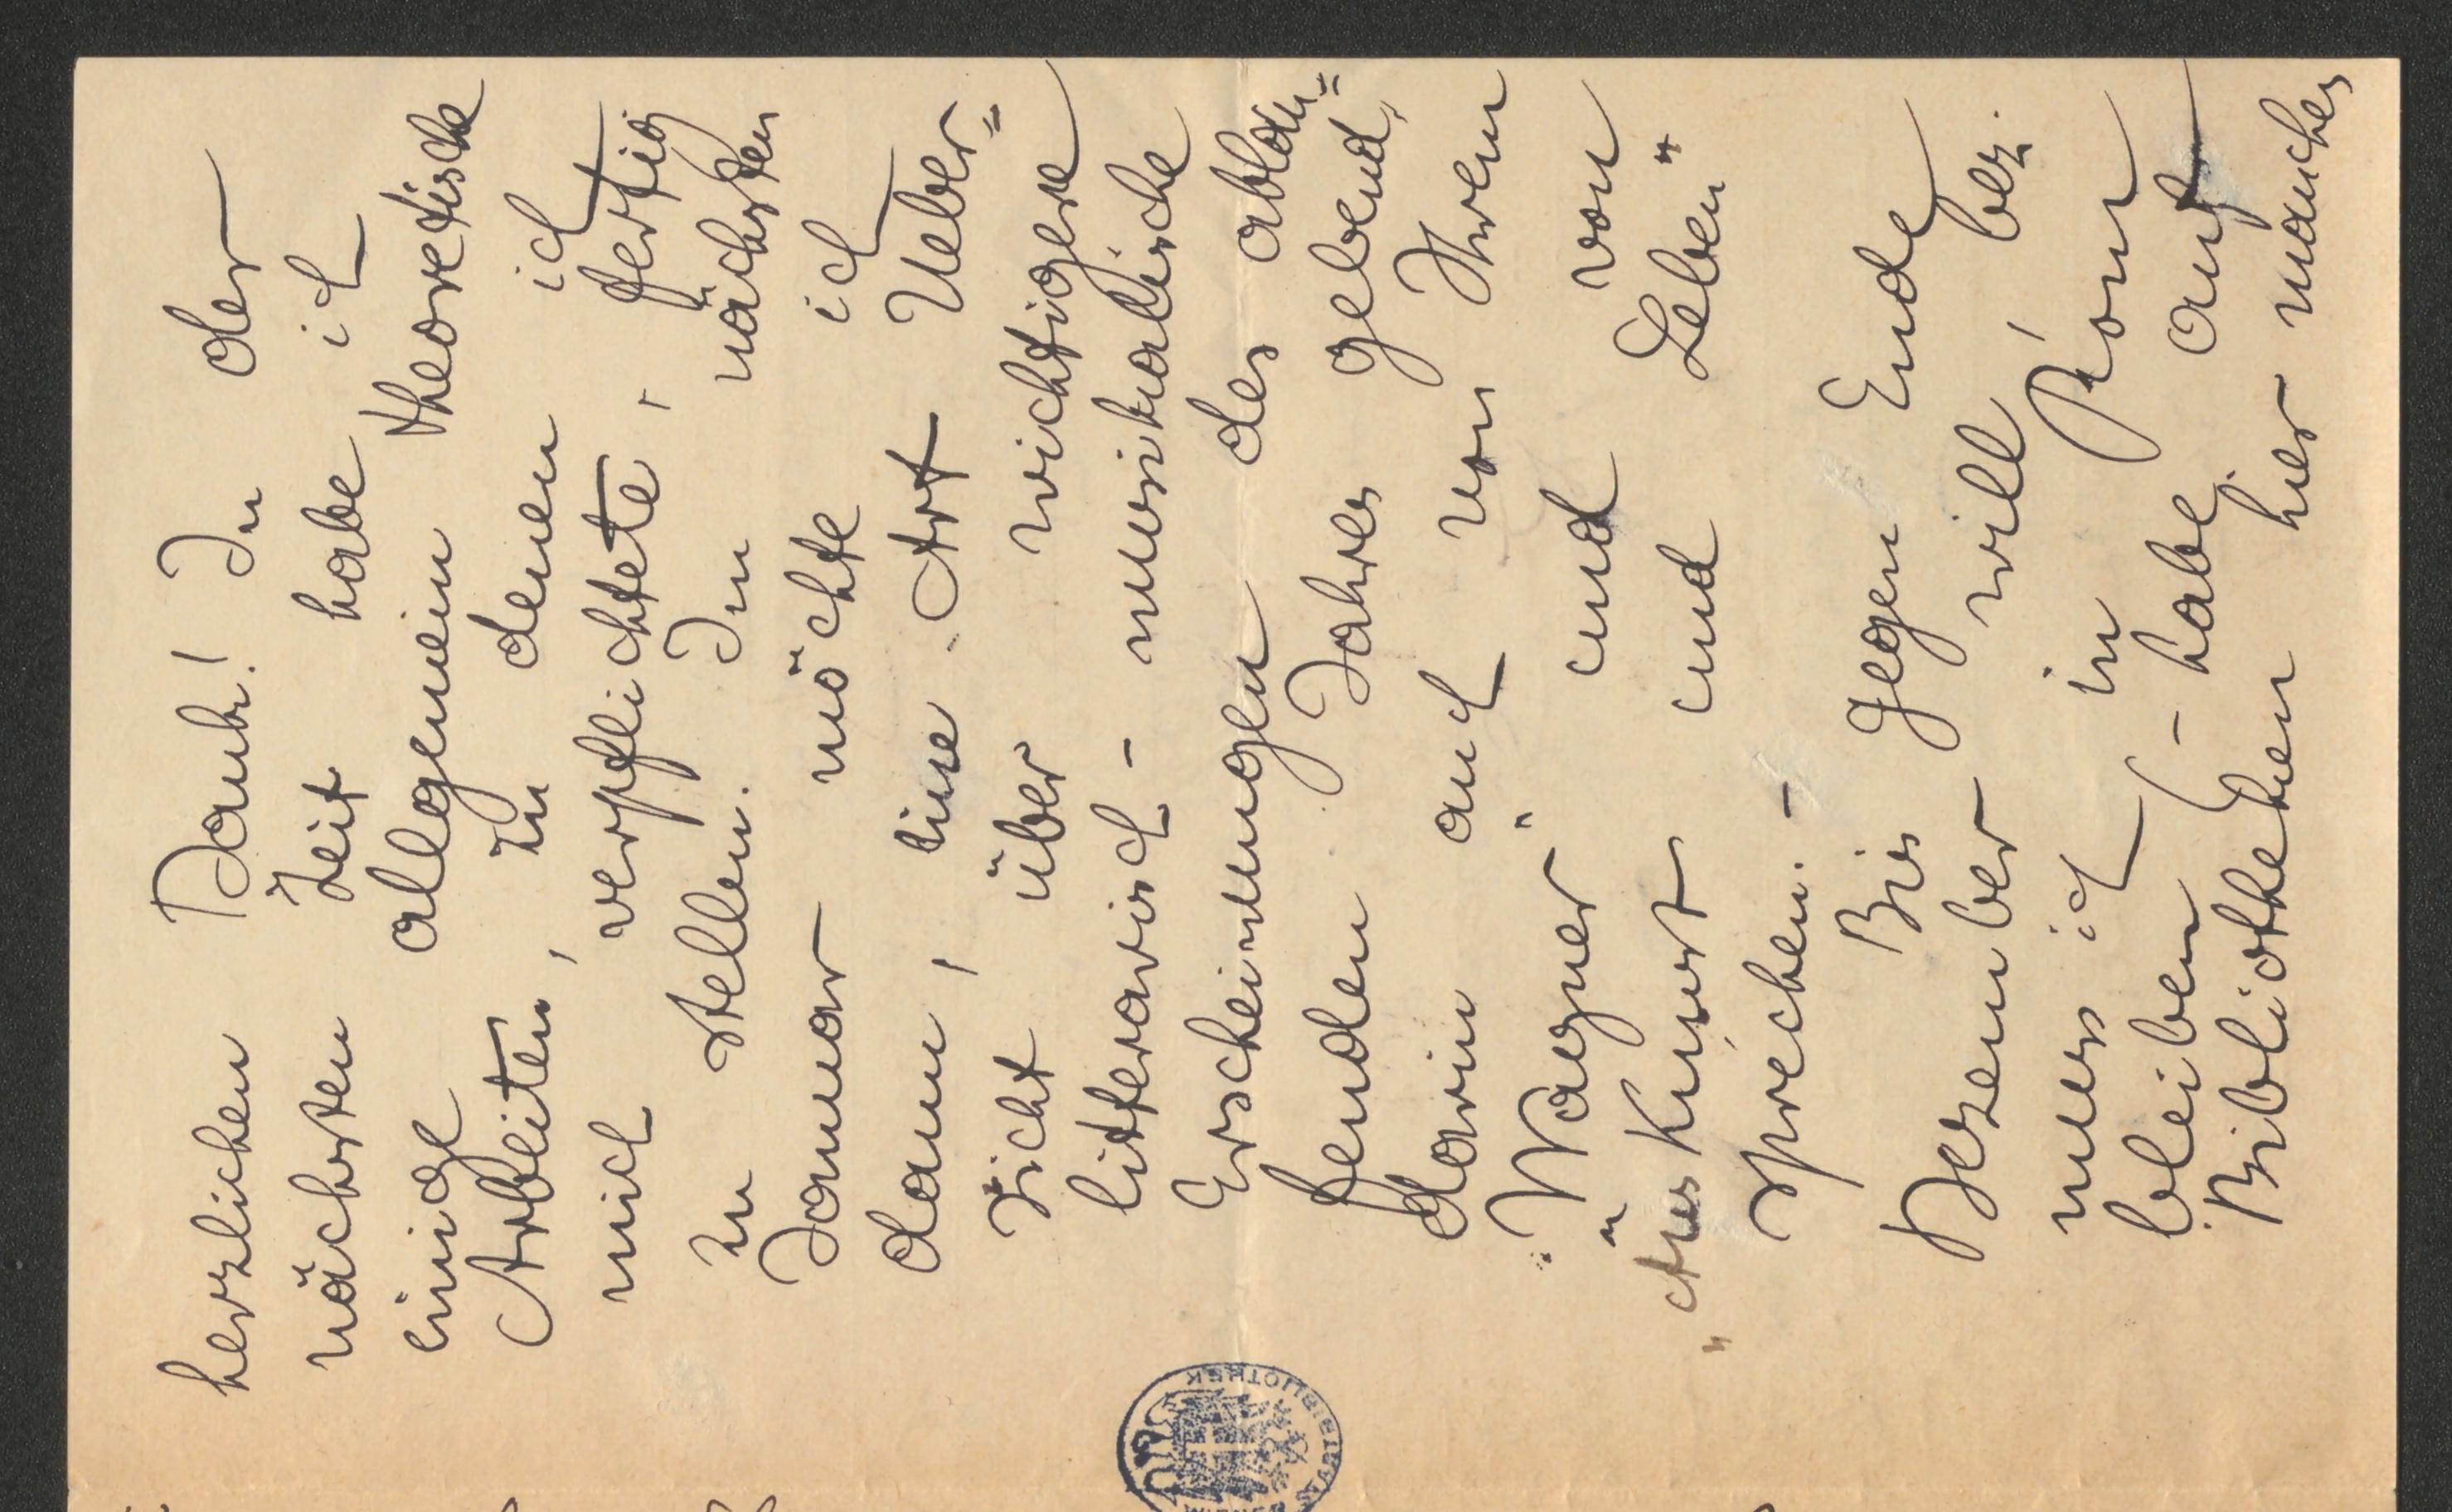 herzlichen Dank! In der
nächsten Zeit habe ich
einige allgemein theoretische
Arbeiten, zu denen ich
mich verpflichtete, fertig
zu stellen. Im nächsten
Januar möchte ich
dann, eine Art Ueber=
sicht über wichtigere
litterarisch-musikalische
Erscheinungen des ablau=
fenden Jahres gebend,
darin auch von Ihrem
"Wagner" und von
"Aus Kunst und Leben"
sprechen. -
Bis gegen Ende
Dezember will, bez.
muss ich in Rom
bleiben (- habe auf
Bibliotheken hier manches
BIBLIOTHEK
WIENER